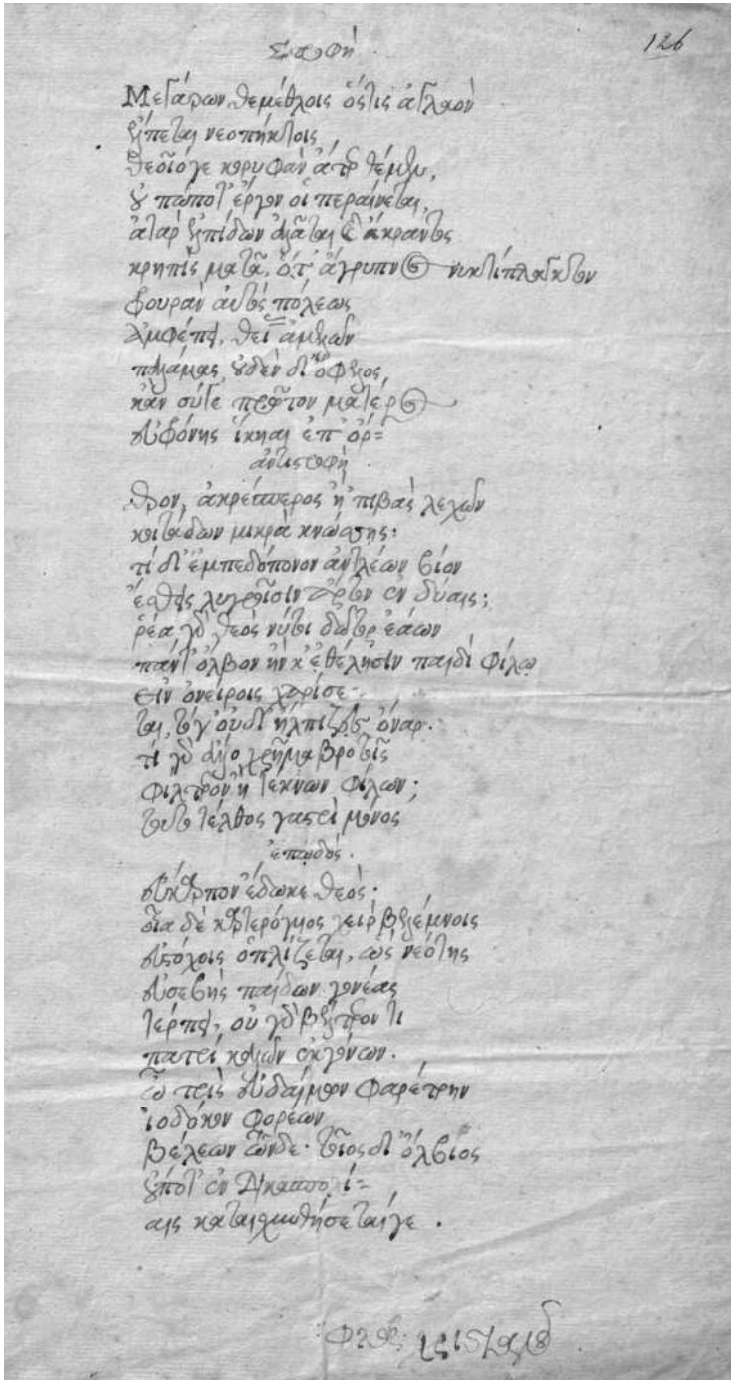 Στροφή.
126
Μεγάρων θεμέθλοις ὅστις ἀγλαὸν
ἕπεται νεοπήκτοις
θεοῖό γε κορυφὰν ἄτερ θέμεν,
οὐ πώποτ' ἔργον οἱ περαίνεται,
ἀτὰρ ἐλπίδων ἀλᾶται ἀκράντος
κρηπὶς ματᾷ, ὅτ' ἄγρυπνος νυκτίπλαγκτον
φουρὰν πόλεως
ἀμφέπει, θεῖ
παλάμας οὐδὲν δι' ὄφελος,
κἂν σύγε πρῶτον ματέρος
εὐφόνης ἵκηαι ἐπ' ὄρ=
ἀντιστροφή
θρον, ἀκρέσπερος ἢ 'πιβὰς λεχῶν
κοιτάδων μικρὰ κνώσσης·
τί δ' ἐμπεδόπονον ἀντλέων βίον
λυγροῖσιν ἄρτον ἐν δύαις;
ῥέα γὰρ θεὸς δωτὴρ ἐάων
πάντ' ὄλβον ἤν κ' ἐθέλησιν παιδὶ φίλῳ
εἰν ὀνείροις χαρίσε-
ται, τόγ' οὐδ' ἤλπιζεν ὄναρ.
τί γὰρ ἄλλο χρῆμα βροτοῖς
φίλτρον ἢ τέκνων φίλων;
τοῦτο γαστρὶ μόνος
ἐπῳδός.
εὔκαρπον ἔδωκε θεός·
οἷα δὲ καρτερόχμος χεὶρ βελέμνοις
εὐστόχοις ὁπλίζεται, ὡς νεότης
εὐσεβὴς παίδων γονέας
τέρπει, οὐ γὰρ βέλτρον τι
πατρὶ καλῶν ἐκγόνων.
ὦ τρὶς εὐδαίμων φαρέτρην
ἰοδόκον φορέων
βελέων τῶνδε· τοῖος δ' ὄλβιος
οὔποτ' ἐν δικασπολί=
αις καταισχυνθήσεταίγε.